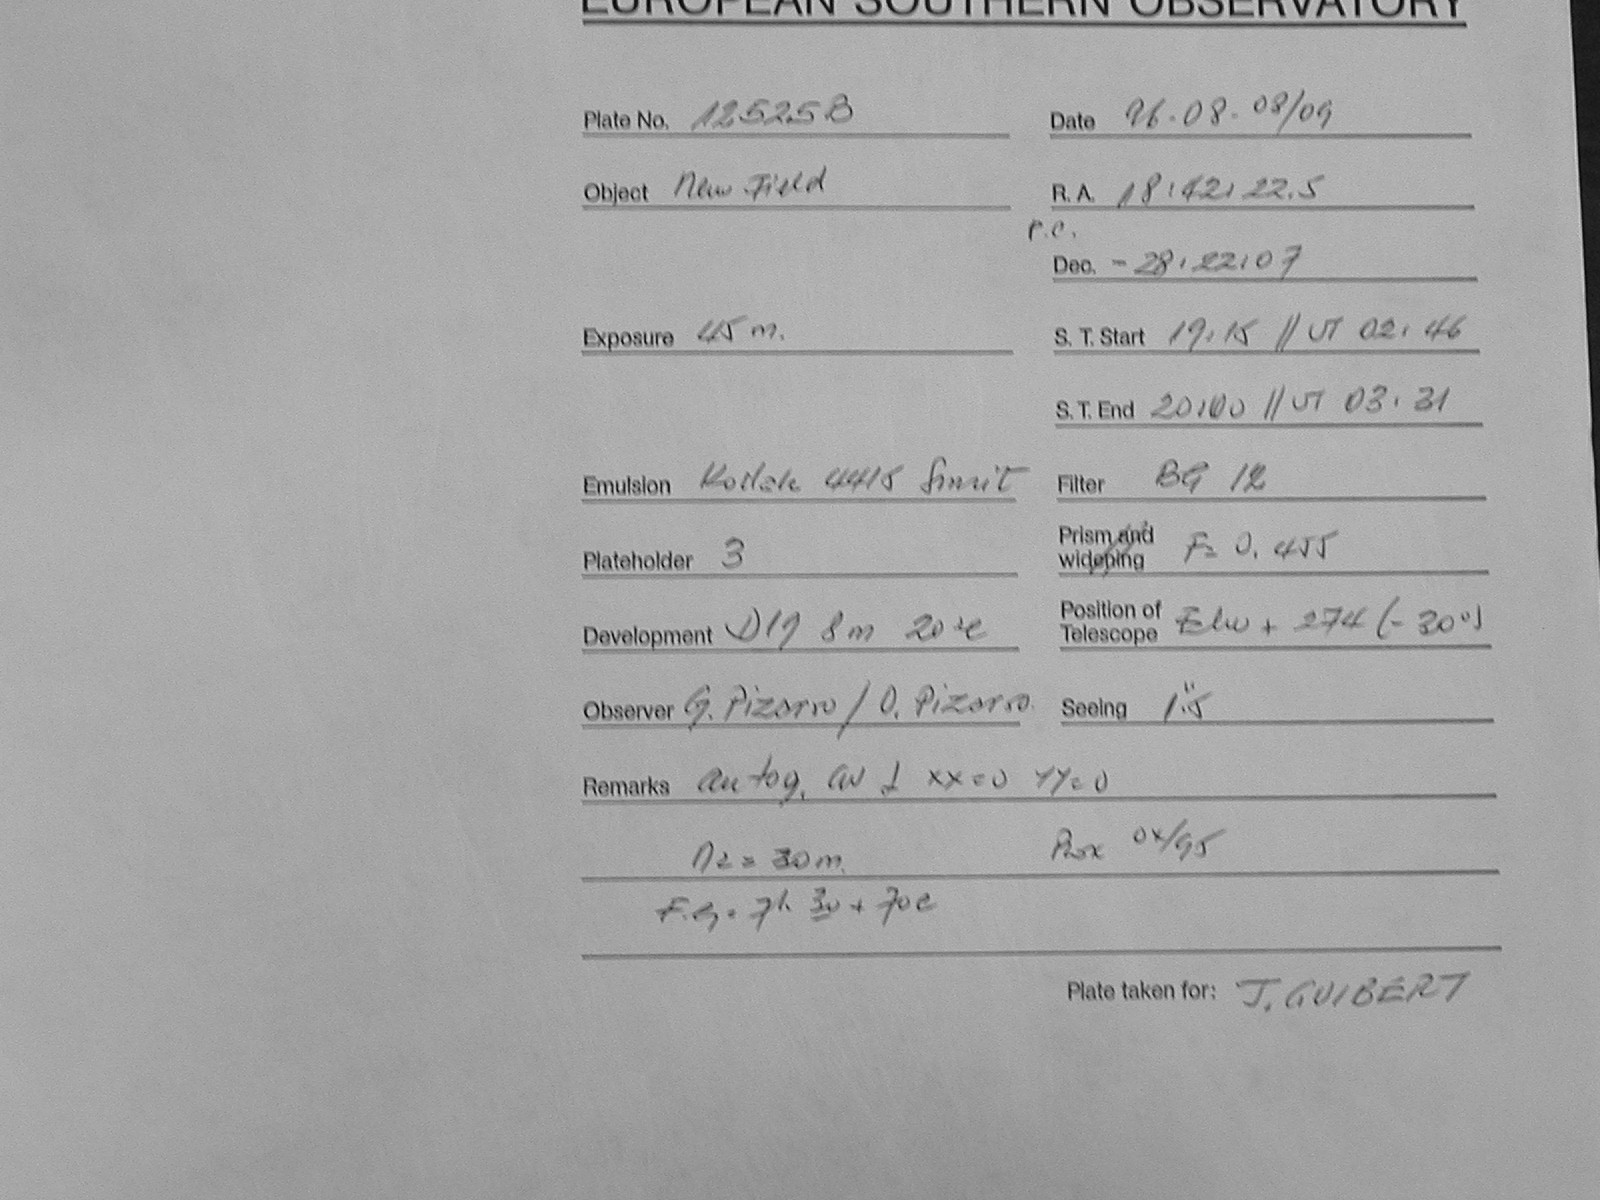 EUROPEAN SOUTHERN OBSERVATORY
Plate No. 12525B Date 96.08.08/09
Object New Field R. A. 18:42:22.5
p.c.
Dec. -28:22:07
Exposure 45 m. S. T. Start 19:15 // UT 02:46
S. T. End 20:00 // UT 03:31
Emulsion Kodak 4415 Filter BG 12
Plateholder 3 Prism and widening F= 0.455
Development D19 8m 20°C Position of Telescope + 274 (-30°)
Observer G. Pizarro / O. Pizarro Seeing 1".5
Remarks autog. XX=0 YY=0
= 30 m.
7h 30 + 70e
Plate taken for: J. GUIBERT